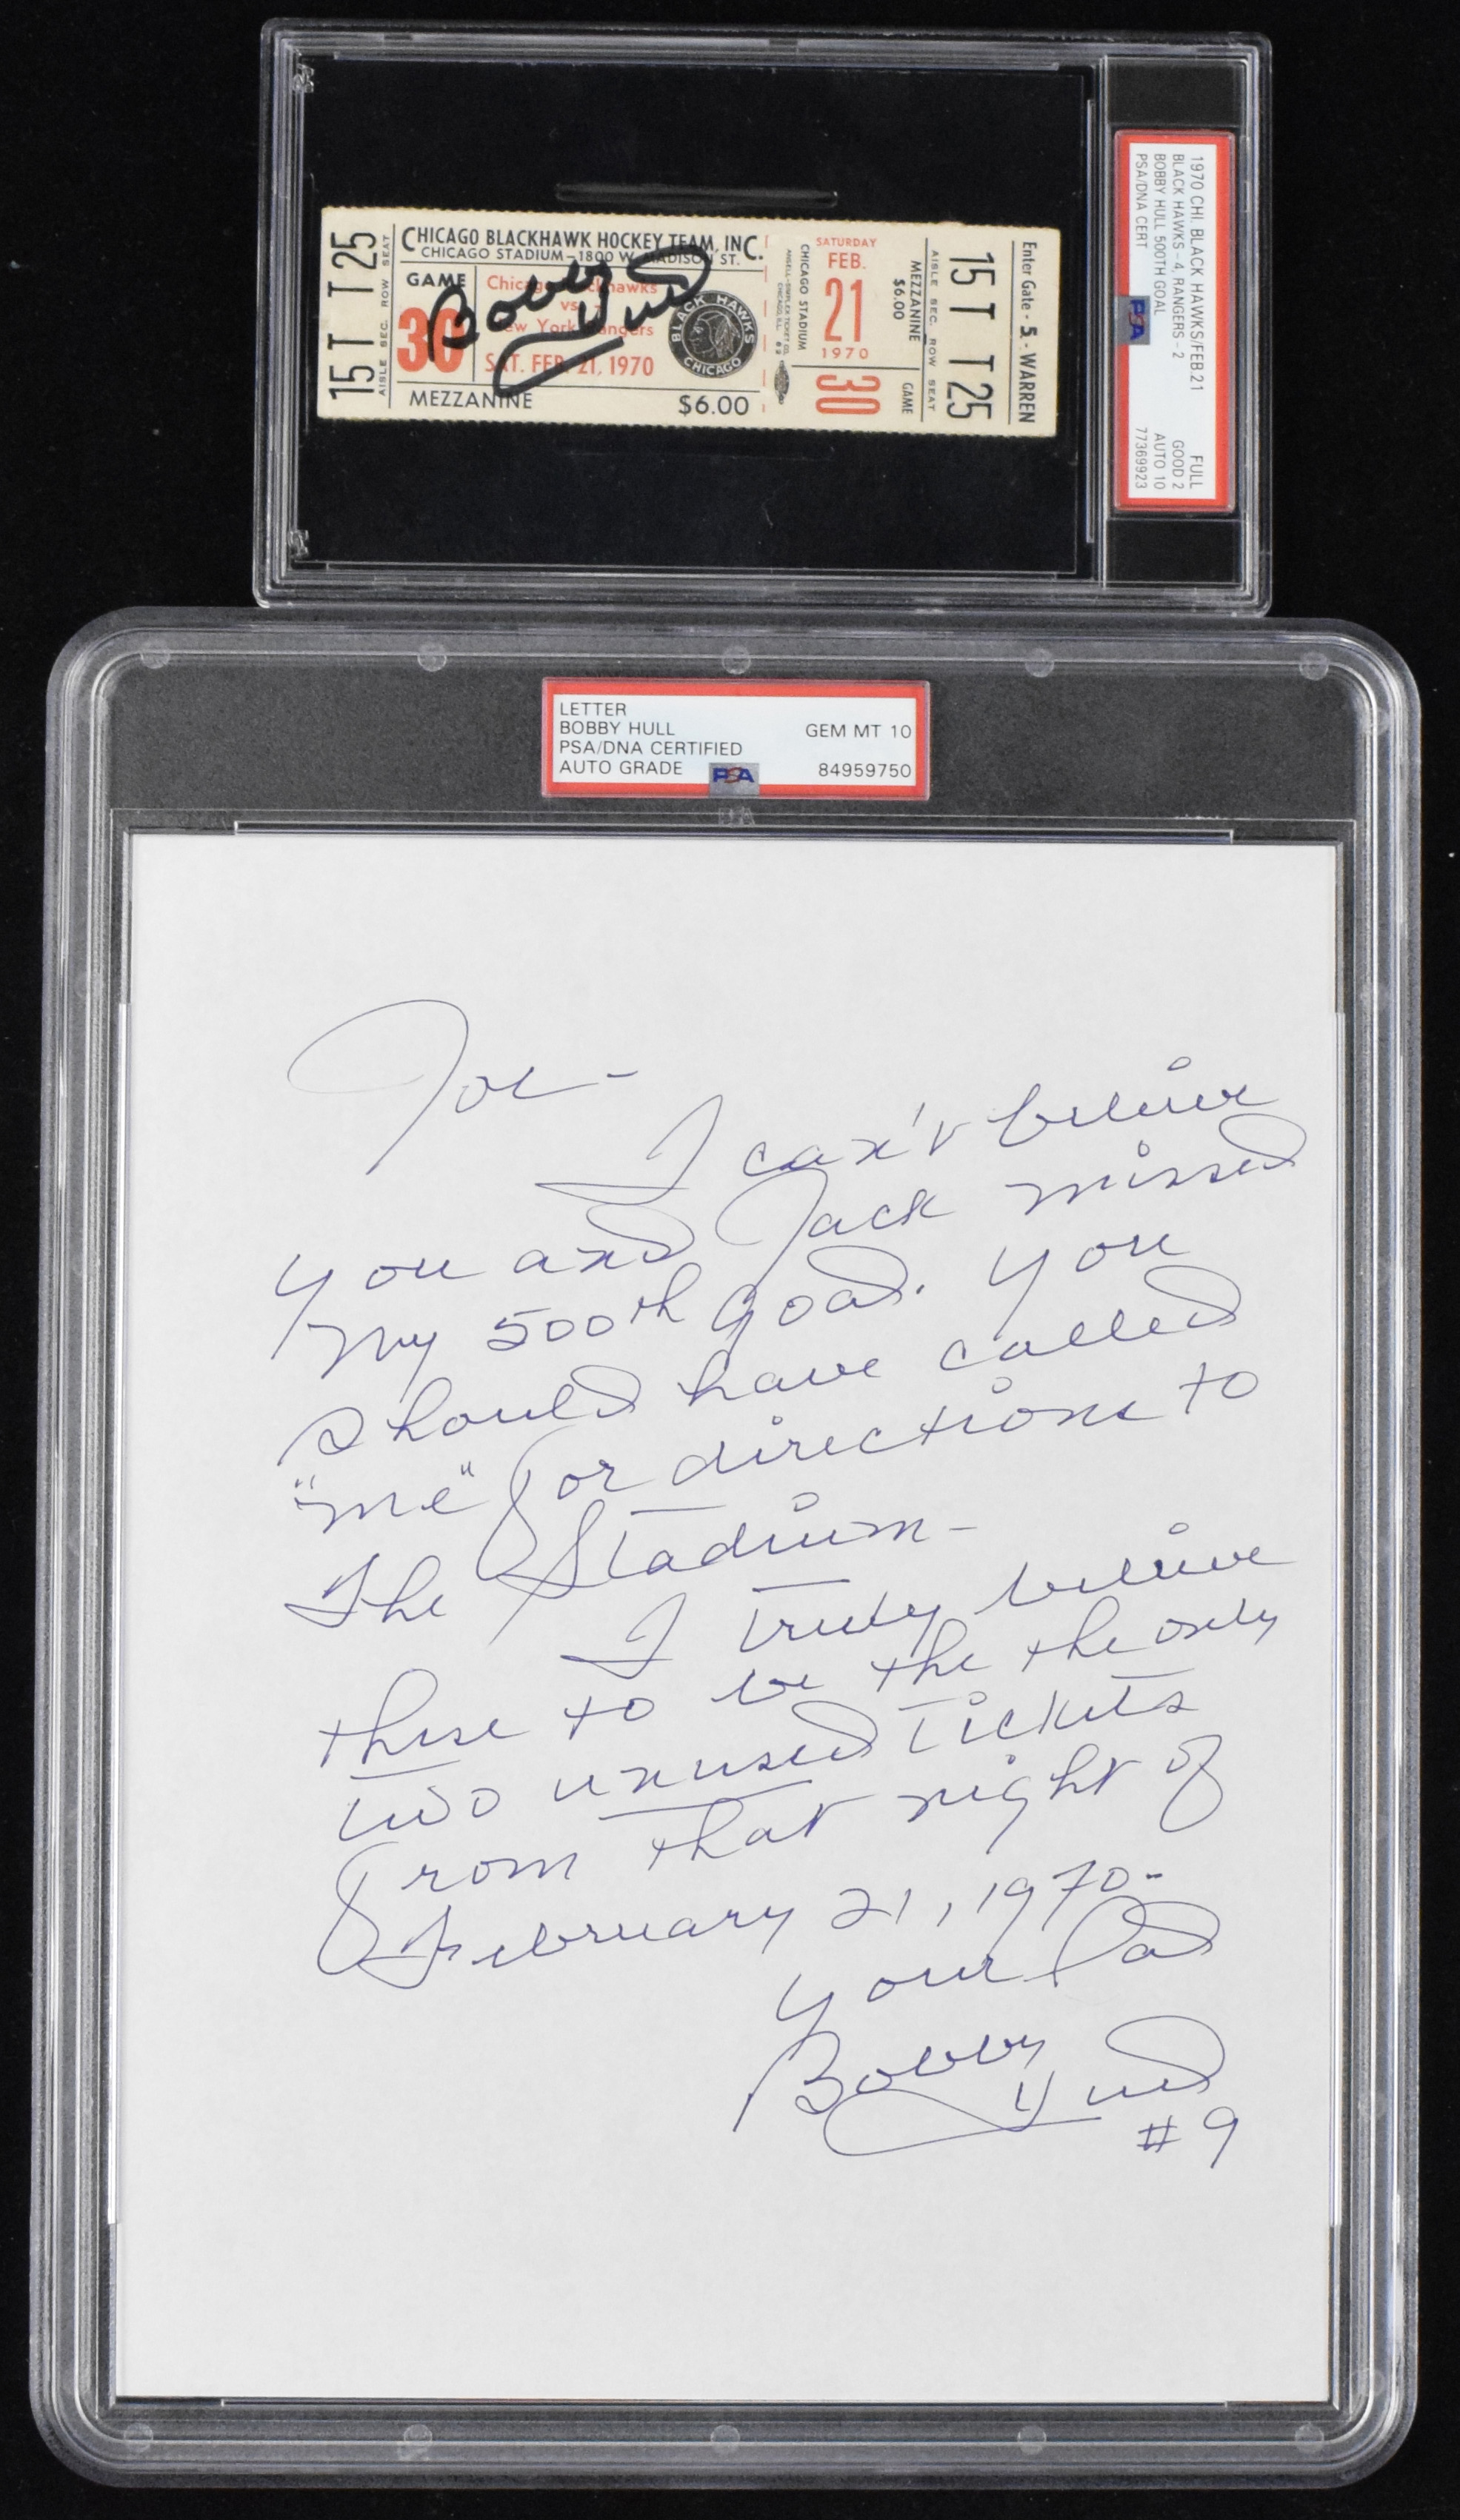 1970 CHI. BLACK HAWKS/FEB.21 FULL
BLACK HAWKS-4, RANGERS-2 GOOD 2
BOBBY HULL 500TH GOAL AUTO 10
PSA/DNA CERT 77369923
PSA
15 T T 25
AISLE SEC. ROW SEAT
CHICAGO BLACKHAWK HOCKEY TEAM, INC.
CHICAGO STADIUM-1800 W. MADISON ST.
GAME
30
Chicago Blackhawks
vs.
New York Rangers
SAT. FEB. 21, 1970
MEZZANINE $6.00
BLACK HAWKS
CHICAGO
Bobby Hull
CHICAGO STADIUM
SATURDAY
FEB.
21
1970
30
GAME
MEZZANINE
$6.00
AISLE SEC. ROW SEAT
15 T T 25
Enter Gate - 5 - WARREN
LETTER
BOBBY HULL GEM MT 10
PSA/DNA CERTIFIED
AUTO GRADE PSA 84959750
Joe-
I can't believe
you and Jack missed
my 500th goal. You
should have called
"me" for directions to
the Stadium-
I truly believe
these to be the the only
two unused tickets
from that night of
February 21, 1970-
your Pal
Bobby Hull
#9